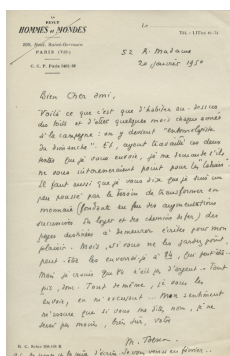 LA REVUE
HOMMES et MONDES
Boul. Saint-Germain
PARIS (VIe)
C. C. P. Paris
Le
TÉL. : LITtré
52 R. Madame
20 janvier 1950
Bien cher ami,
Voilà ce que c'est que d'habiter au-dessus
des toits et d'être quelques mois chaque année
à la campagne : on y devient "entomologiste
du dimanche". Et, ayant travaillé ces deux
textes que je vous envoie, je me demande s'ils
ne vous intéresseraient point pour les "Cahiers".
Il faut aussi que je vous dise que je suis un
peu poussé par le besoin de transformer en
monnaie (fondante au feu des augmentations
du loyer et des chemins de fer) des
pages destinées à demeurer écrites pour mon
plaisir. Mais, si vous ne les gardez point
peut-être les enverrai-je à
Mais je crois que n'a pas d'argent. Tant
pis, donc. Tout de même, je vous les
envoie, en m'excusant... Mon sentiment
m'assure que si vous me dites non, je ne
serai pas moins, bien sûr, votre
M.
R. C. Seine